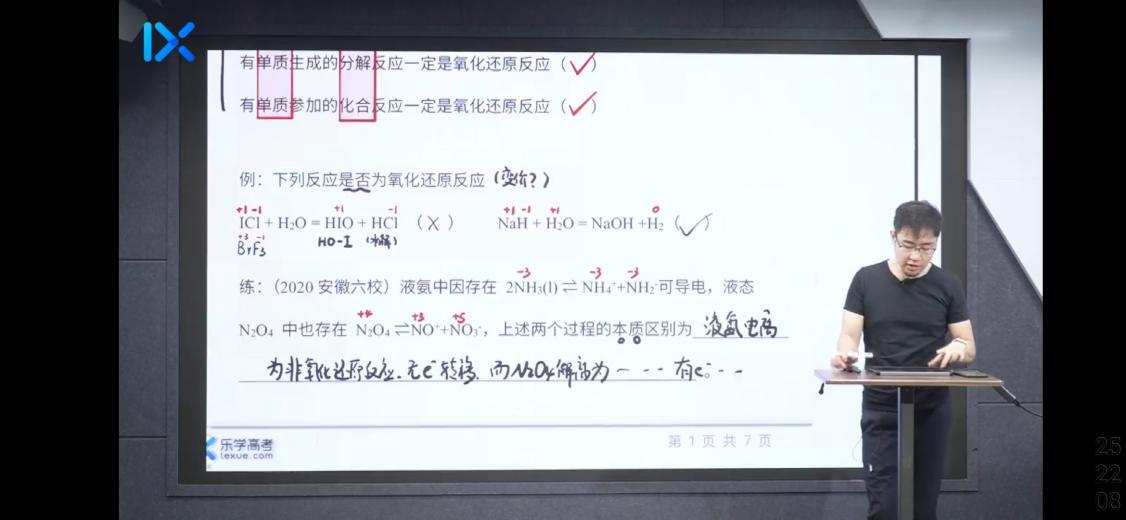 有单质生成的分解反应一定是氧化还原反应（✓）
有单质参加的化合反应一定是氧化还原反应（✓）
例：下列反应是否为氧化还原反应（变价？）
+1 -1 +1 -1 +1 -1 +1 0
ICl + H₂O = HIO + HCl （X） NaH + H₂O = NaOH +H₂ （✓）
+3 -1
BrF₃ HO-I （水解）
-3 -3 -3
练：（2020 安徽六校）液氨中因存在 2NH₃(l) ⇌ NH₄⁺+NH₂⁻可导电，液态
+4 +3 +5
N₂O₄ 中也存在 N₂O₄ ⇌ NO⁺+NO₃⁻，上述两个过程的本质区别为 液氨电离
为非氧化还原反应，无e⁻转移，而N₂O₄解离为一 --- 有e⁻ ---
乐学高考
lexue.com
第 1 页 共 7 页
25
22
08